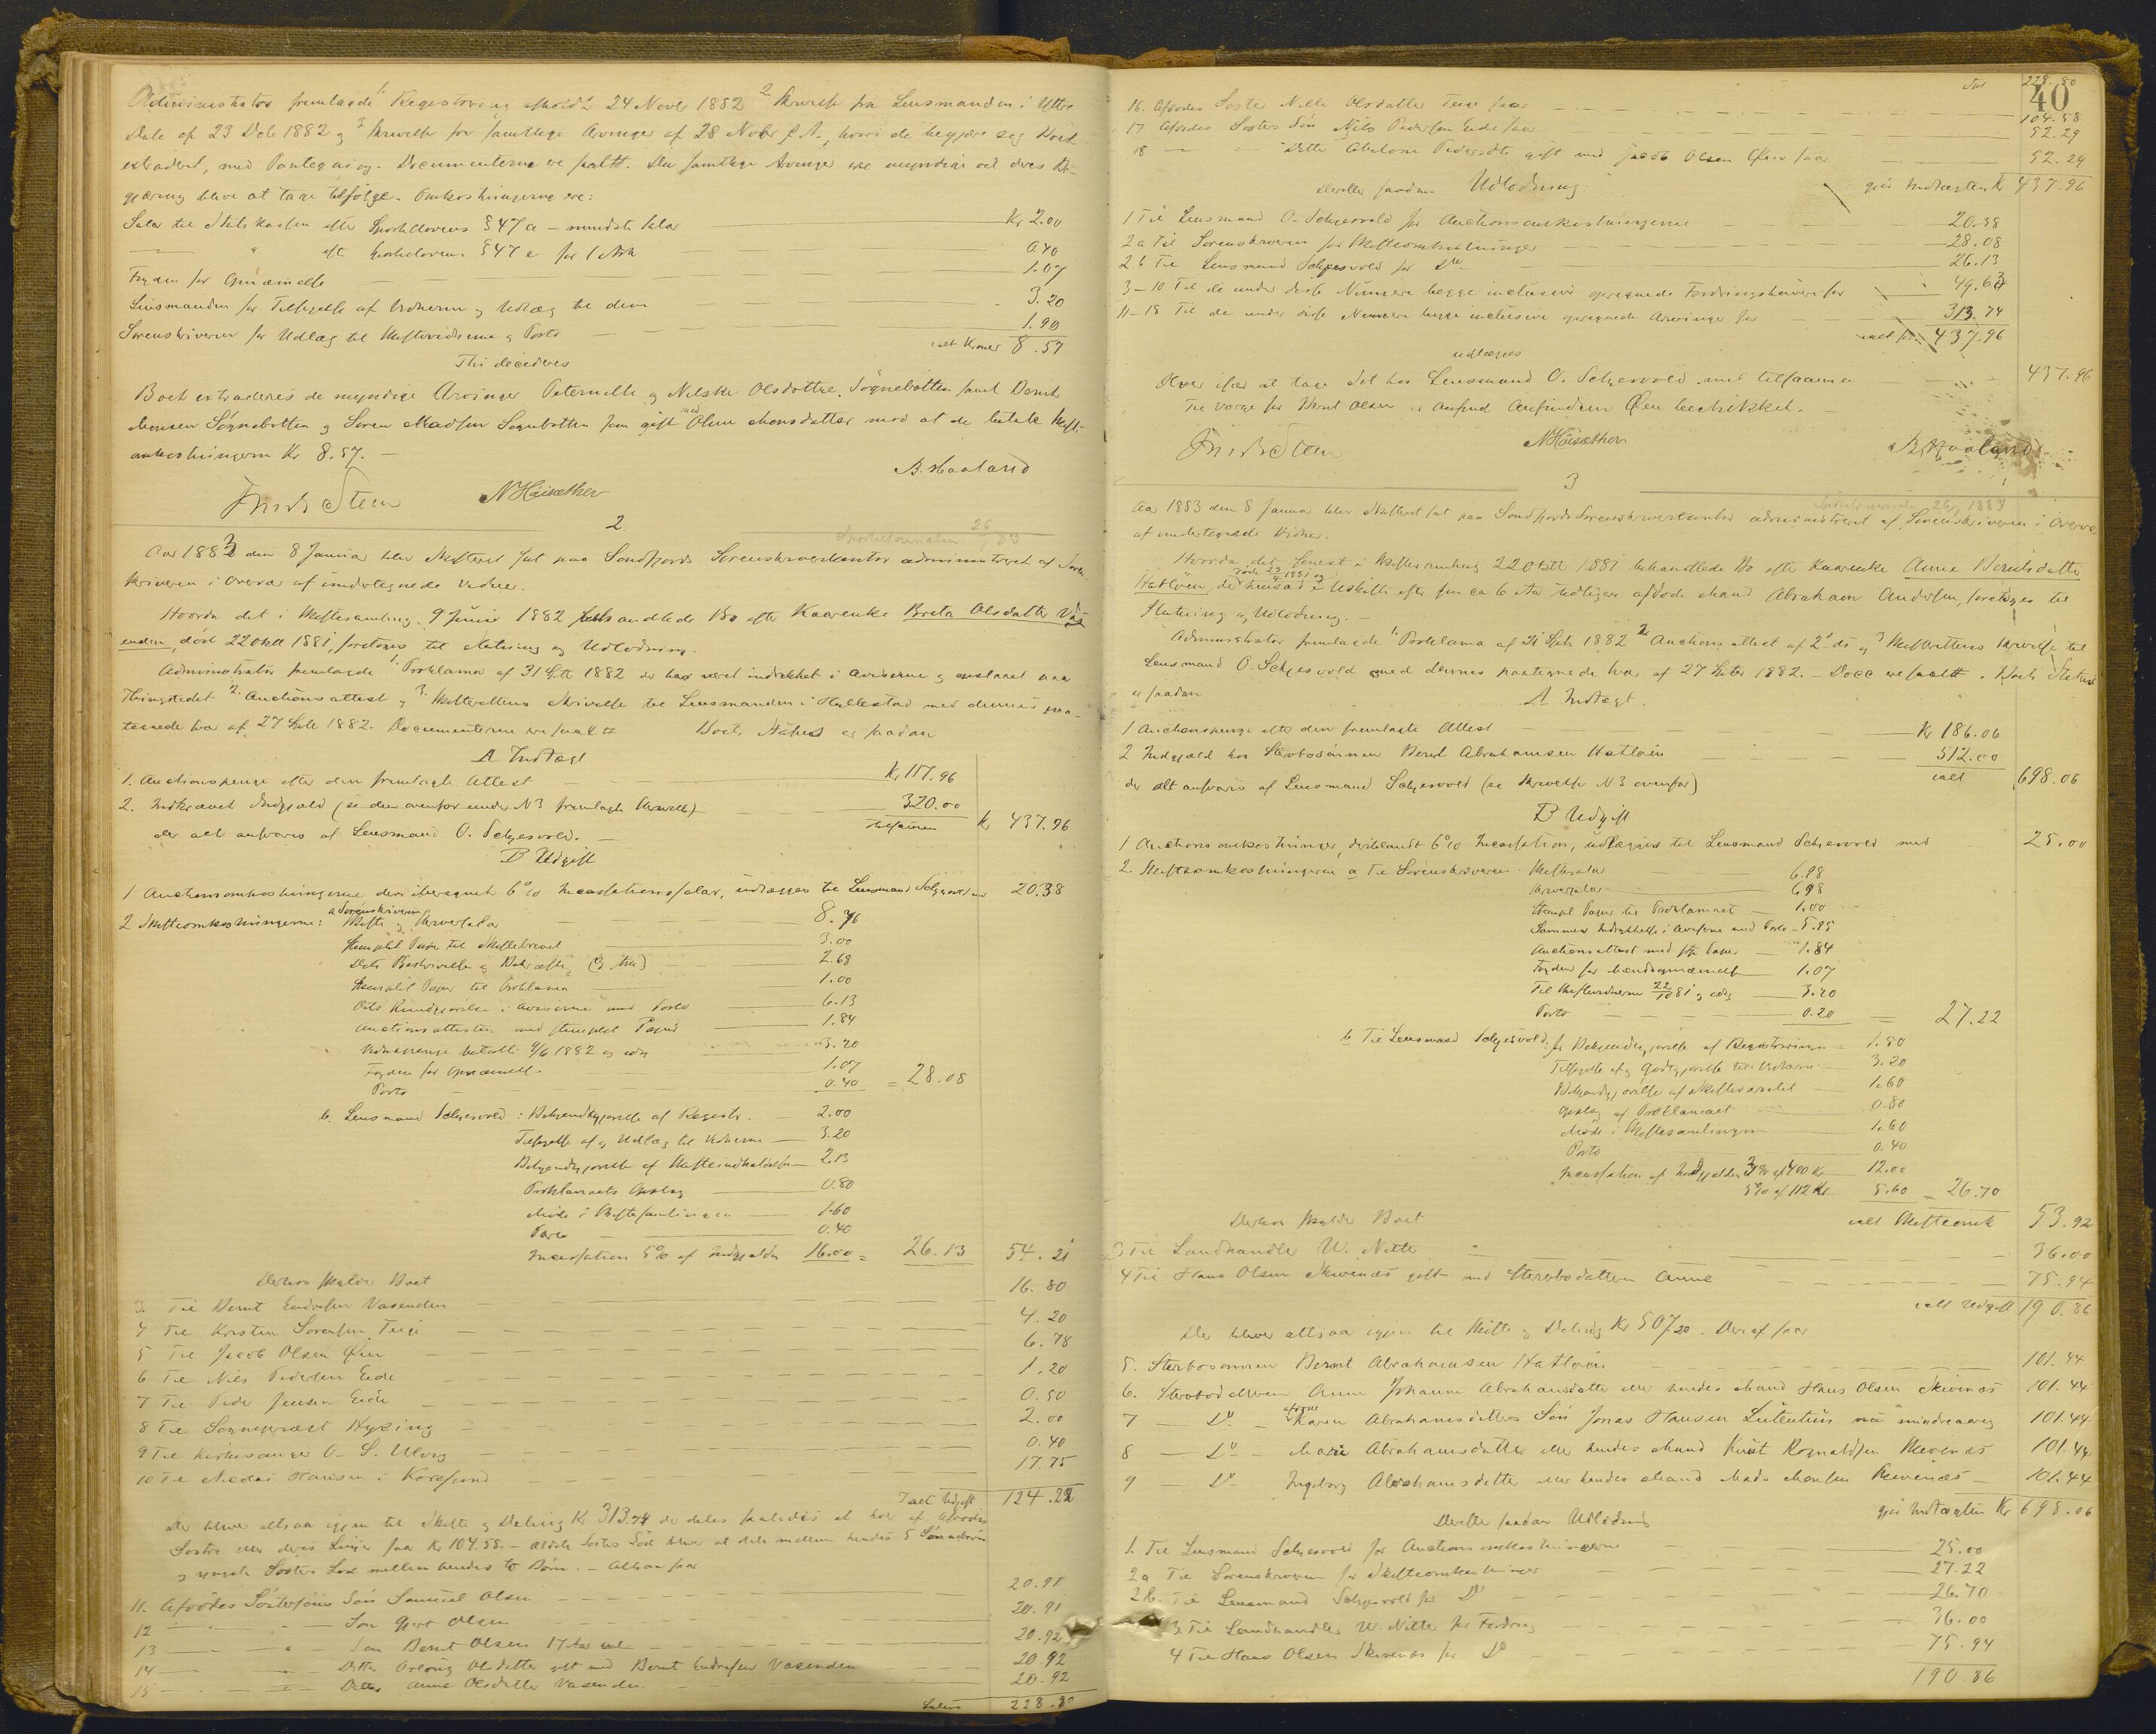 Administrator fremlagde 1 Registrering afholdt 24 Novb 1882 2 Skrivelse fra Lensmanden i Yttre
Dale af 23 Decb 1882 og 3 Skrivelse fra samtlige Arvinger af 28 Novbr f. A., hvori de begjære sig Boet
extraderet, med Paategning. Documenterne ere saaltt. Da samtlige Arvinger ere myndige vil deres Be-
gjæring blive at tage tilfølge. Omkostningerne ere:
Salar til Statskassen efter Sportellovens § 47 a — mindste Salar Kr 2.00
— " efter Sportellovens § 47 e for 1 Ark 0.40
Fogden for Opnævnelse 1.07
Lensmanden for Tilsigelse af Vidnerne og Udlæg til dem 3.20
Sorenskriveren for Udlæg til Skiftevidnerne og Porto 1.90
ialt Kroner 8.57
Thi decideres
Boet extraderes de myndige Arvinger Peternelle og Nilske Olsdøttre Sögnebotten samt Bernt
Monsen Sögnebotten og Søren Madsen Sognebotten som gift med Oline Monsdatter mod at de betale Skifte-
omkostningerne Kr 8.57. —
B. Haaland
Fredr Steen NHöisæther
2
Sporteljournalen 26/1 83
Aar 1883 den 8 Januar blev Skifteret sat paa Söndfjords Sorenskriverkontor administreret af Soren-
skriveren i Overvær af undertegnede Vidner.
Hvorda det i Skiftesamling 9 Juni 1882 behandlede Bo efter Kaarenke Brita Olsdatter Vas-
enden, död 22 Oktb 1881, foretoges til Slutning og Udlodning.
Administrator fremlagde 1. Proklama af 31 1882 der har været indrykket i Aviserne og opslaaet paa
Thingstedet 2. Auctionsattest og 3. Skifterettens Skrivelse til Lensmanden i Hyllestad med dennes paa-
tegnede Svar af 27 1882. Documenterne ere saaltt Boets Status er saadan
A Indtægt
1. Auctionspenge efter den fremlagte Attest Kr 117.96
2. Indkrævet Indgjæld (se den ovenfor under N 3 fremlagte Skrivelse) 320.00
der alt ansvares af Lensmand O. Schjesvold. — tilsammen Kr 437.96
B Udgift
1 Auctionsomkostningerne deri iberegnet 6% Incassationssalar, udlægges til Lensmand Schjesvold med 20.38
2 Skifteomkostningerne: a Sorenskriveren Skifte og Skriversalar 8.76
Stemplet Papir til Skiftebrevet 3.00
Dets Beskrivelse og Bekræftelse (3 Ark) 2.68
Stemplet Papir til Proklama 1.00
Dets Kundgjörelse i Aviserne med Porto 6.13
Auctionsattesten med stemplet Papir 1.84
Vidnepenge betalt 9/6 1882 og idag 3.20
Fogden for Opnævnelse 1.07
Porto 0.40 = 28.08
b. Lensmand Schjesvold: Bekjendtgjörelse af Registr. 2.00
Tilsigelse af og Udlæg til Vidnerne 3.20
Bekjendtgjörelse af Skifteindkaldelse 2.13
Proklamaets Opslag 0.80
Möde i Skiftesamlingen 1.60
Porto 0.40
Incassation 5% af Indgjælden 16.00 = 26.13 54.21
Derhos skylder Boet
3 Til Bernt Endresen Vasenden 16.80
4 Til Kristen Sörensen Teige 4.20
5 Til Jacob Olsen Öen 6.78
6 Til Nils Pedersen Eide 1.20
7 Til Peder Jensen Eide 0.50
8 Til Sogneprest Hysing 2.00
9 Til Kirkesanger O. S. Ulvog 0.40
10 Til Nicolai Hansen i 17.75
Ialt Udgift 124.22
Der bliver altsaa igjen til Skifte og Deling Kr 313.74 der deles saaledes at hver af Afdödes
Söstre eller deres Linjer faar Kr 104.58. — ældste Sösters Lod bliver at dele mellem hendes 5
og yngste Sösters Lod mellem hendes to Börn. — Altsaa faar
11. Afdödes Söstersöns Sön Samuel Olsen 20.91
12 — " — Sön Olsen 20.91
13 — " — Sön Bernt Olsen 17 Aar 20.92
14 — " — Datter Olsdatter gift med Bernt Endresen Vasenden 20.92
15 — " — Datter Anne Olsdatter Vasenden 20.92
Lateris 228.80
40
Trsp 228.80
16. Afdödes Söster Nille Olsdatter Teige faar 104.58
17 Afdödes Sösters Sön Nils Pedersen Eide faar 52.29
18 — " — Datter Abelone Pedersdtr gift med Jacob Olsen Öen faar 52.29
gjör Indtægten Kr 437.96
Derefter saadan Udlodning:
1 Til Lensmand O. Schjesvold for Auctionsomkostningerne 20.38
2a Til Sorenskriveren for Skifteomkostninger 28.08
2b Til Lensmand Schjesvold for Do 26.13
3–10 Til de under disse Numere begge inclusive opregnede Fordringshavere for 49.63
11–18 Til de under disse Numere begge inclusive opregnede Arvinger for 313.74
ialt 437.96
udlægges
at tage det hos Lensmand O. Schjesvold med tilsammen 437.96
Til Værge for Bernt Olsen er Anfind Anfindsen Öen beskikket. —
Fredr Steen NHöisæther B. Haaland
3
Sporteljournalen 26/1 1883
Aar 1883 den 8 Januar blev Skifteret sat paa Söndfjords Sorenskriverkontor administreret af Sorenskriveren i Overvær
af undertegnede Vidner.
Hvorda det senest i Skiftesamling 22 Oktb 1881 behandlede Bo efter Kaarenke Anne Berntsdatter
Hatlöen, der döde 23/4 1881 og hensad i Uskifte efter sin ca 6 Aar tidligere afdöde Mand Abraham Andersen, foretoges til
Slutning og Udlodning. —
Administrator fremlagde 1. Proklama af 1882 2 Auctions attest af 2 ds og 3 Skifterettens Skrivelse til
Lensmand O. Schjesvold med dennes paategnede Svar af 27 1882. — Docc ere saaltt. Boets Status
er saadan
A Indtægt.
1 Auctionspenge efter den fremlagte Attest Kr 186.06
2 Indgjæld hos Stervbosönnen Bernt Abrahamsen Hatlöen 512.00
der alt ansvares af Lensmand Schjesvold (se Skrivelse N 3 ovenfor) ialt 698.06
B Udgift
1 Auctionsomkostninger, deriblandt 6% Incassation, udlægges til Lensmand Schjesvold med 25.00
2. Skifteomkostningerne a Til Sorenskriveren: Skiftesalar 6.98
Skriversalar 6.98
Stempl Papir til Proklamaet 1.00
Sammes Indrykkelse i Aviserne med Porto 5.95
Auctionsattest med stp Papir 1.84
Fogden for Opnævnelse 1.07
Til Skiftevidnerne 22/10 81 og idag 3.20
Porto 0.20 = 27.22
b Til Lensmand Schjesvold: for Bekjendtgjörelse af Registreringen 1.80
Tilsigelse af og Godtgjörelse til Vidnerne 3.20
Bekjendtgjörelse af Skiftevarslet 1.60
Opslag af Proklamaet 0.80
Möde i Skiftesamlingen 1.60
Porto 0.40
Incassation af Indgjælden 3% af 400 Kr 12.00
5% af 112 Kr 5.60 = 26.70
ialt Skifteomk 53.92
Derhos skylder Boet
3 Til Landhandler W. Nitter 36.00
4 Til Hans Olsen Skivenæs gift med Stervbodatteren Anne 75.94
ialt Udgift 190.86
Der bliver altsaa igjen til Skifte og Deling Kr 507.20. Deraf faar
5. Stervbosönnen Bernt Abrahamsen Hatlöen 101.44
6. Stervbodatteren Anne Johanne Abrahamsdatter eller hendes Mand Hans Olsen Skivenæs 101.44
7 — Do — afdöde Karen Abrahamsdatters Sön Jonas Hansen mindreaarig 101.44
8 — Do — Marie Abrahamsdatter eller hendes Mand Knut Rognaldsen Skivenæs 101.44
9 — Do — Ingeborg Abrahamsdatter eller hendes Mand Mads Monsen Skivenæs 101.44
gjör Indtægten Kr 698.06
Derefter saadan Udlodning
1. Til Lensmand Schjesvold for Auctionsomkostningerne 25.00
2a Til Sorenskriveren for Skifteomkostninger 27.22
2b. Til Lensmand Schjesvold for Do 26.70
3. Til Landhandler W. Nitter for Fordring 36.00
4 Til Hans Olsen Skivenæs for Do 75.94
190.86